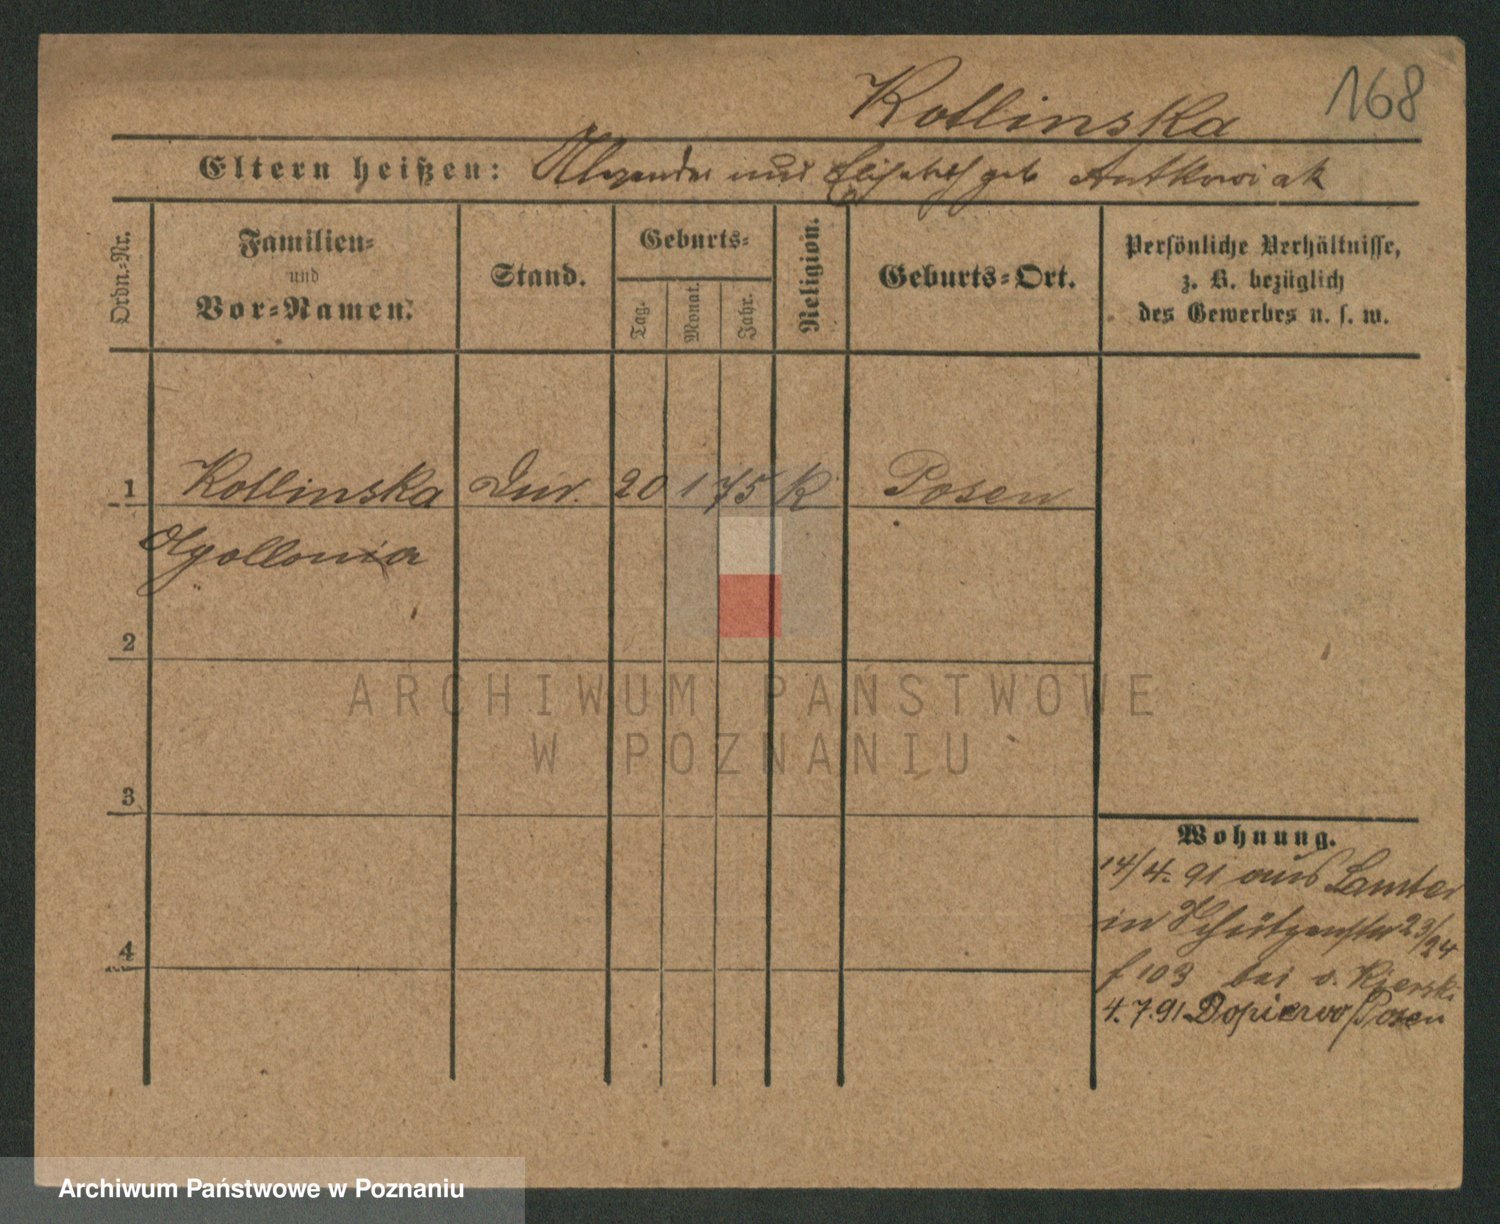 168
Kotlinska
Eltern heißen: Alexander und Elisabeth geb Antkowiak
Ordn.-Nr.
Familien-
und
Vor-Namen.
Stand.
Geburts-
Tag.
Monat.
Jahr.
Religion.
Geburts-Ort.
Persönliche Verhältnisse,
z. B. bezüglich
des Gewerbes u. s. w.
1 Kotlinska 20 1 75 K Posen
Apollonia
2
3
4
ARCHIWUM PAŃSTWOWE
W POZNANIU
Wohnung.
14/4. 91 aus Samter
in Schützenstr 23/24
f 103 bei v. Kierski
4.7.91 Dopierwo/Posen
Archiwum Państwowe w Poznaniu